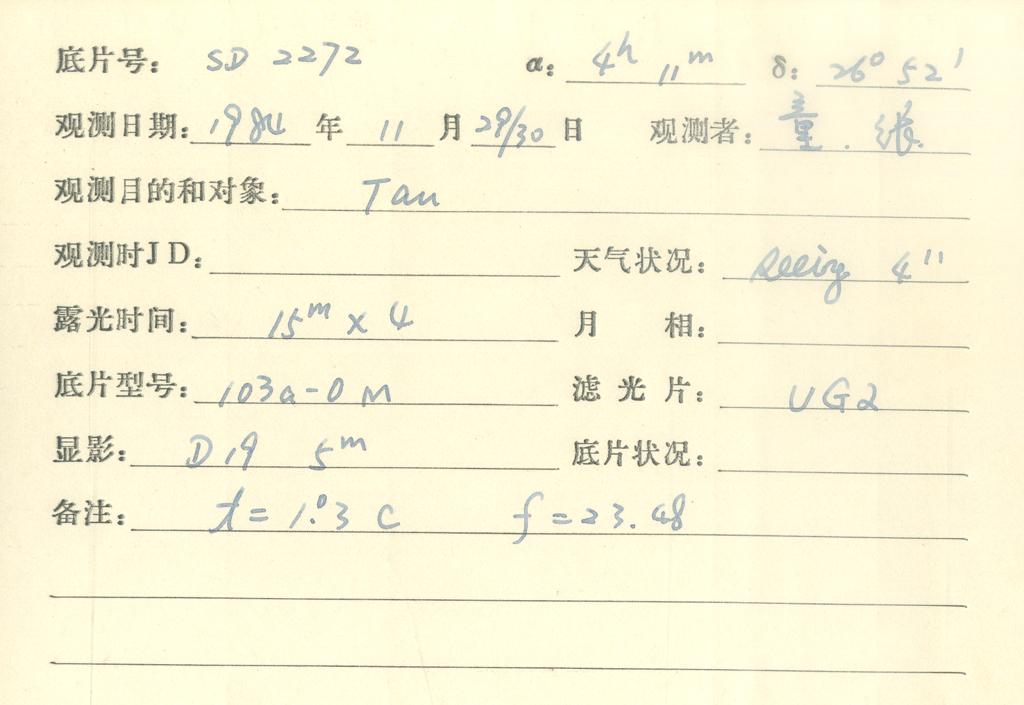 底片号: SD 2272 α: 4h 11m δ: 26° 52′
观测日期: 1984 年 11 月 29/30 日 观测者: 童. 张.
观测目的和对象: Tau
观测时JD:
天气状况: Seeing 4″
露光时间: 15m × 4
月 相:
底片型号: 103a-O M
滤 光 片: UG2
显影: D19 5m
底片状况:
备注: t = 1°.3 C f = 23.48